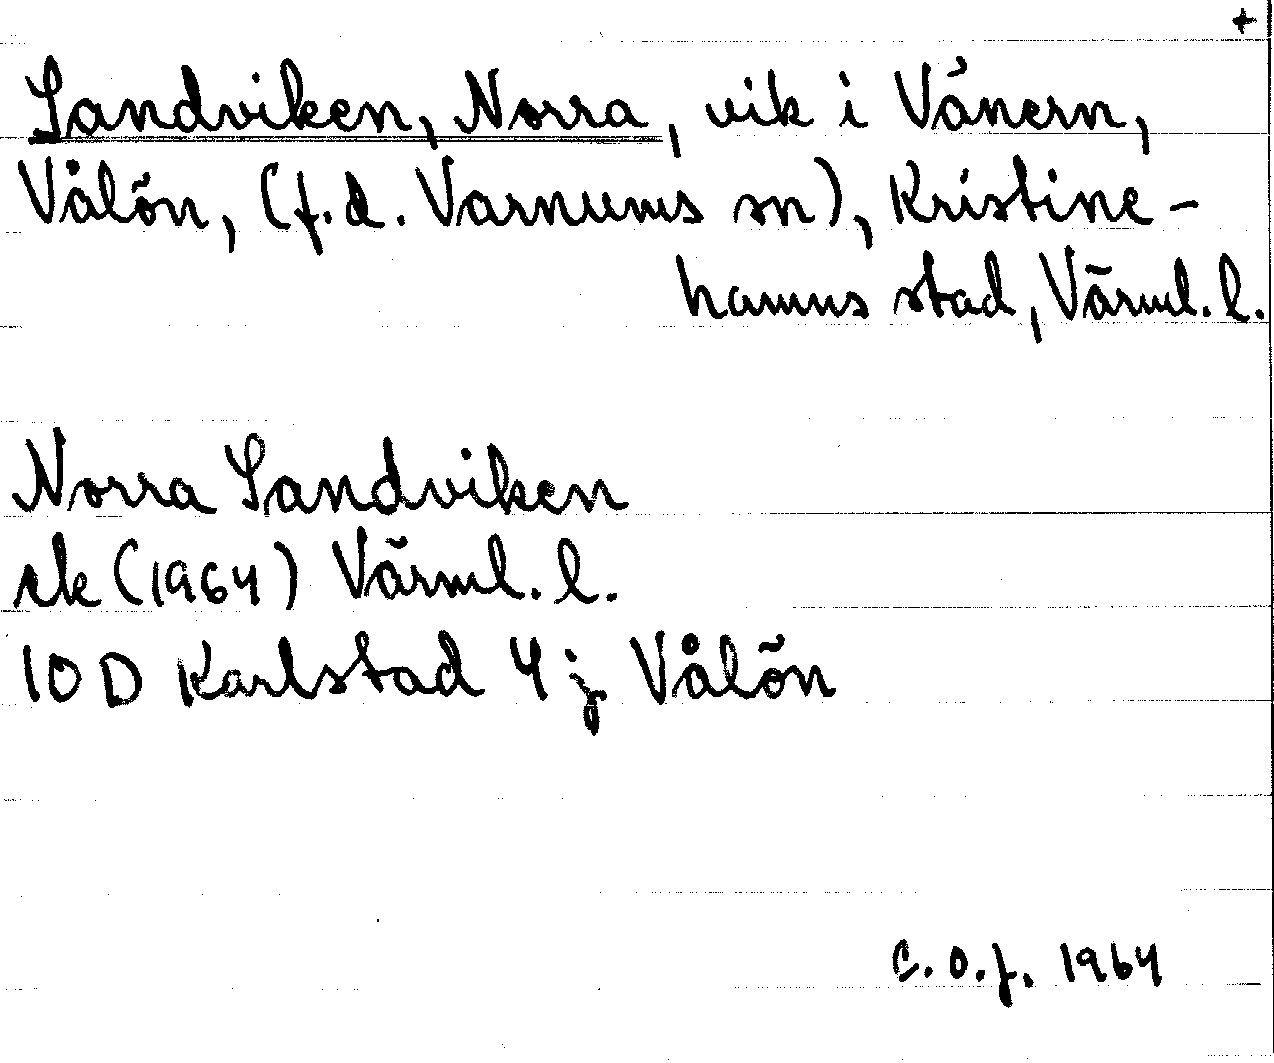 +
Sandviken, Norra, vik i Vänern,
Vålön, (f.d. Varnums sn), Kristine-
hamns stad, Värml. l.
Norra Sandviken
rk (1964) Värml. l.
10 D Karlstad 4 j Vålön
C.O.J. 1964